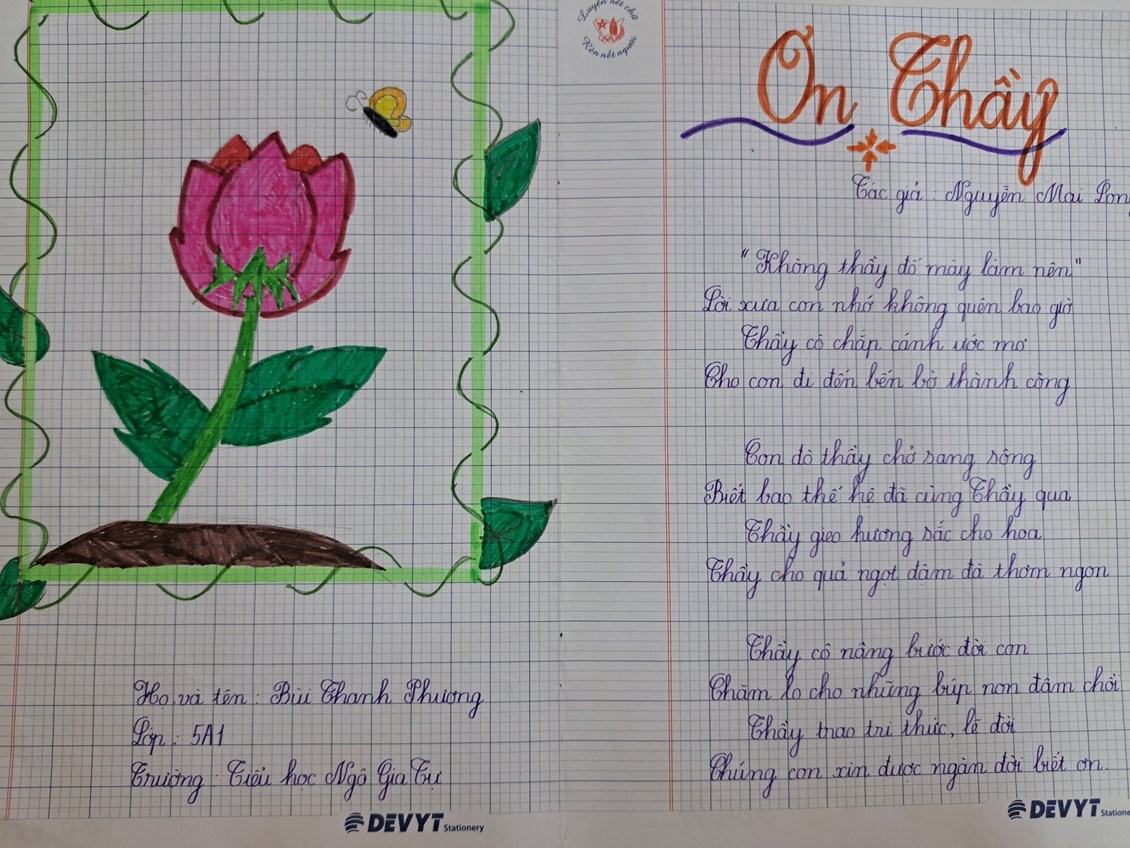 Họ và tên : Bùi Thanh Phương
Lớp : 5A1
Trường : Tiểu học Ngô Gia Tự
DEVYT Stationery
Luyện nét chữ
Rèn nết người
Ơn Thầy
Tác giả : Nguyễn Mai Long
"Không thầy đố mày làm nên"
Lời xưa con nhớ không quên bao giờ
Thầy cô chắp cánh ước mơ
Cho con đi đến bến bờ thành công
Con đò thầy chở sang sông
Biết bao thế hệ đã cùng Thầy qua
Thầy gieo hương sắc cho hoa
Thầy cho quả ngọt đậm đà thơm ngon
Thầy cô nâng bước đời con
Chăm lo cho những búp non đâm chồi
Thầy trao tri thức, lẽ đời
Chúng con xin được ngàn đời biết ơn.
DEVYT Statione